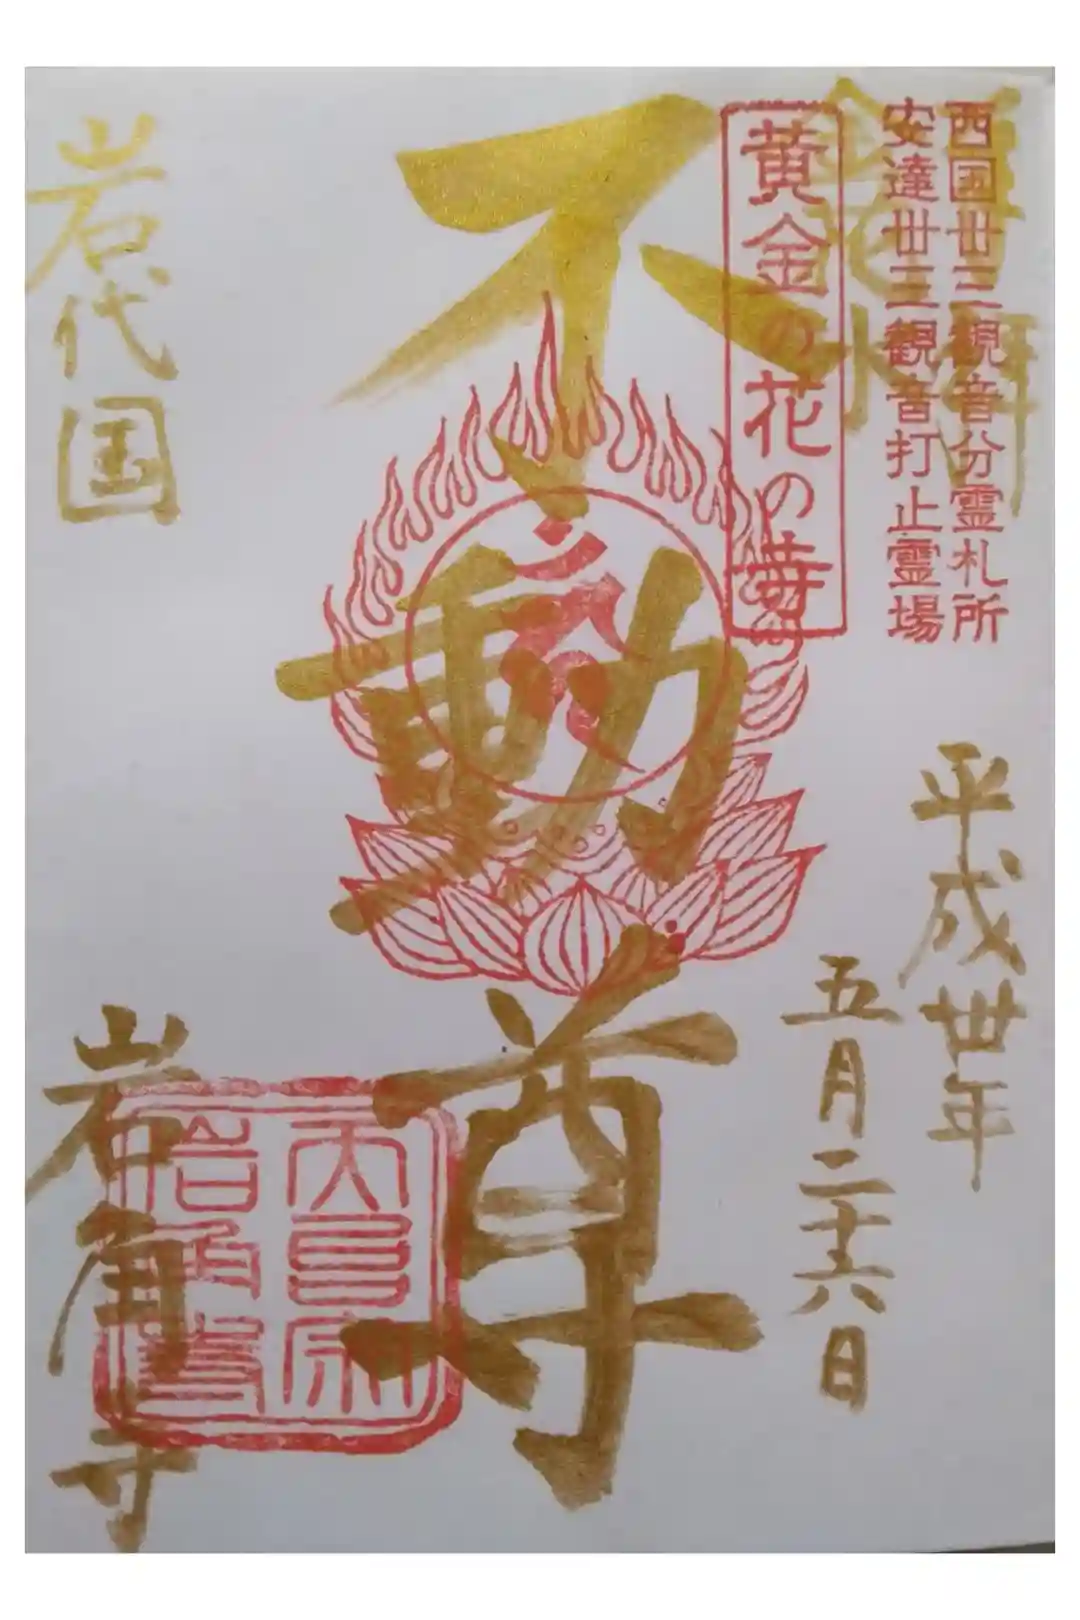 西国卅三観音分霊札所
安達卅三観音打止霊場
黄金の花の寺
平成卅年
五月二十六日
不動尊
岩代国
岩角寺